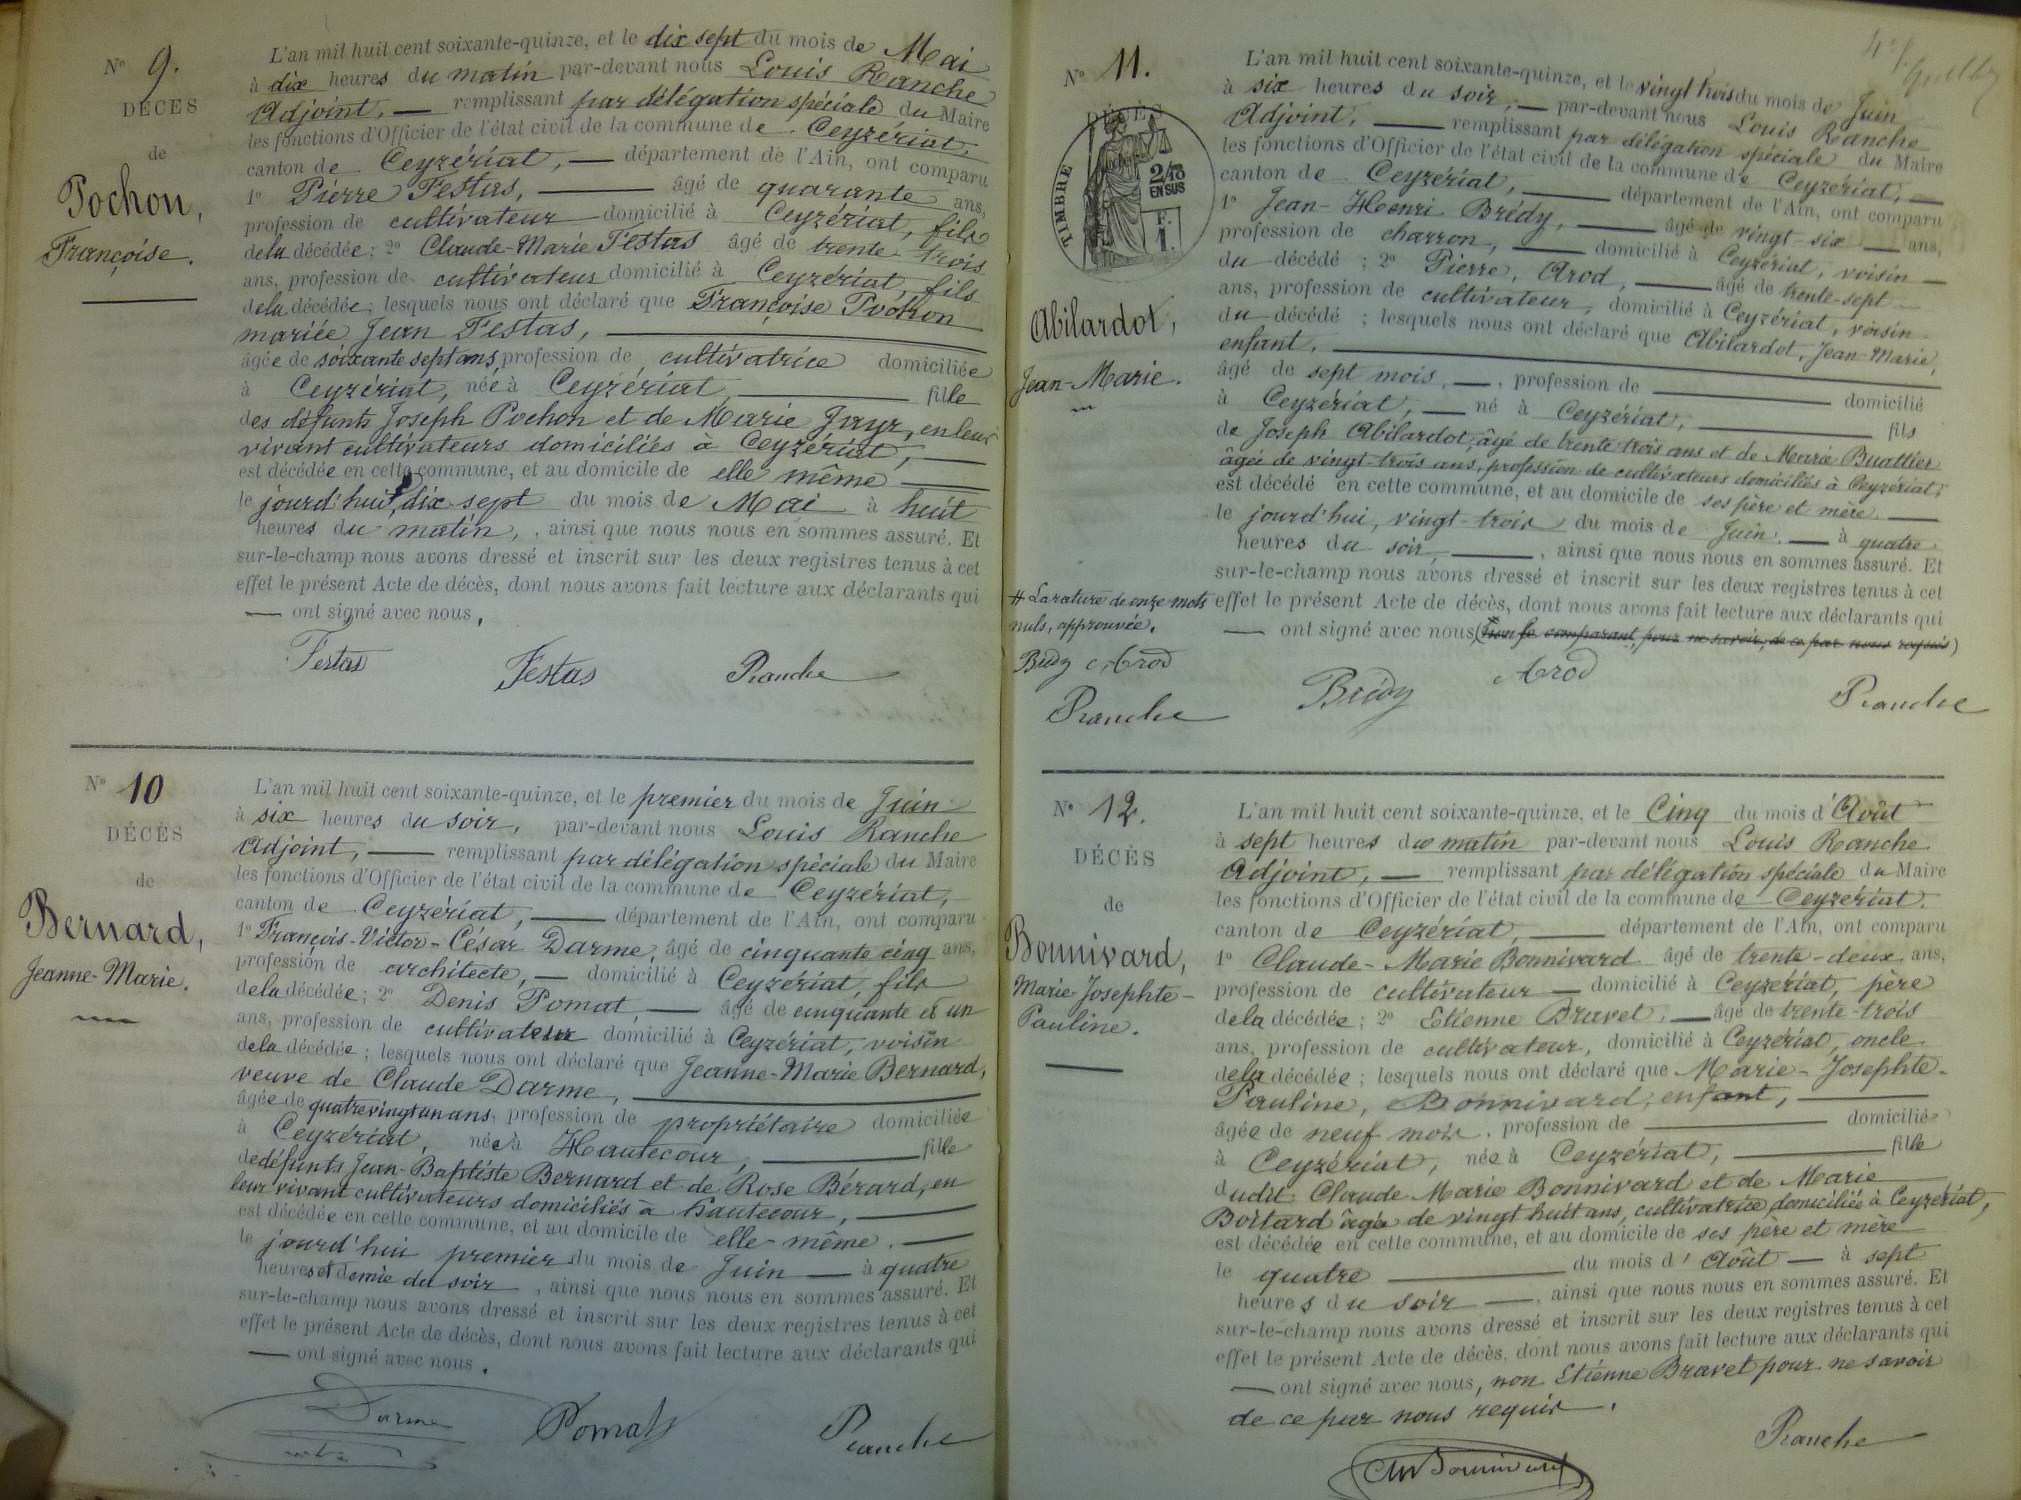 Nº 9.
DÉCÈS
de
Pochon,
Françoise.
L'an mil huit cent soixante-quinze, et le dix sept du mois de Mai
à dix heures du matin par-devant nous Louis Ranche
Adjoint, — remplissant par délégation spéciale du Maire
les fonctions d'Officier de l'état civil de la commune de Ceyzériat,
canton de Ceyzériat, — département de l'Ain, ont comparu
1º Pierre Festas, — âgé de quarante ans,
profession de cultivateur domicilié à Ceyzériat, fils
de la décédée; 2º Claude-Marie Festas âgé de trente-trois
ans, profession de cultivateur domicilié à Ceyzériat, fils
de la décédée; lesquels nous ont déclaré que Françoise Pochon
mariée Jean Festas, —
âgée de soixante sept ans, profession de cultivatrice domiciliée
à Ceyzériat, née à Ceyzériat — fille
des défunts Joseph Pochon et de Marie Jayr, en leur
vivant cultivateurs domiciliés à Ceyzériat, —
est décédée en cette commune, et au domicile de elle même —
le jourd'hui, dix sept du mois de Mai à huit
heures du matin, , ainsi que nous nous en sommes assuré. Et
sur-le-champ nous avons dressé et inscrit sur les deux registres tenus à cet
effet le présent Acte de décès, dont nous avons fait lecture aux déclarants qui
— ont signé avec nous.
Festas Festas Ranche
Nº 10
DÉCÈS
de
Bernard,
Jeanne-Marie.
L'an mil huit cent soixante-quinze, et le premier du mois de Juin
à six heures du soir, par-devant nous Louis Ranche
Adjoint, — remplissant par délégation spéciale du Maire
les fonctions d'Officier de l'état civil de la commune de Ceyzériat,
canton de Ceyzériat, — département de l'Ain, ont comparu
1º François-Victor-César Darme, âgé de cinquante cinq ans,
profession de architecte, — domicilié à Ceyzériat, fils
de la décédée; 2º Denis Pomat, — âgé de cinquante et un
ans, profession de cultivateur domicilié à Ceyzériat, voisin
de la décédée; lesquels nous ont déclaré que Jeanne-Marie Bernard,
veuve de Claude Darme, —
âgée de quatre vingt un ans, profession de propriétaire domiciliée
à Ceyzériat, née à Hautecour, — fille
de défunts Jean-Baptiste Bernard et de Rose Bérard, en
leur vivant cultivateurs domiciliés à hautecour, —
est décédée en cette commune, et au domicile de elle-même. —
le jourd'hui premier du mois de Juin — à quatre
heures et demie du soir , ainsi que nous nous en sommes assuré. Et
sur-le-champ nous avons dressé et inscrit sur les deux registres tenus à cet
effet le présent Acte de décès, dont nous avons fait lecture aux déclarants qui
— ont signé avec nous.
Darme Pomat Ranche
Nº 11.
DÉCÈS
TIMBRE
2/10
EN SUS
F.
1.
Abilardot,
Jean-Marie.
L'an mil huit cent soixante-quinze, et le vingt trois du mois de Juin
à six heures du soir, — par-devant nous Louis Ranche
Adjoint, — remplissant par délégation spéciale du Maire
les fonctions d'Officier de l'état civil de la commune de Ceyzériat, —
canton de Ceyzériat, — département de l'Ain, ont comparu
1º Jean-Henri Brédy, — âgé de vingt-six — ans,
profession de charron, — domicilié à Ceyzériat, voisin —
du décédé; 2º Pierre, Arod, — âgé de trente-sept
ans, profession de cultivateur, domicilié à Ceyzériat, voisin
du décédé; lesquels nous ont déclaré que Abilardot, Jean-Marie,
enfant, —
âgé de sept mois, —, profession de — domicilié
à Ceyzériat, — né à Ceyzériat, — fils
de Joseph Abilardot, âgé de trente trois ans et de Marie Buattier
âgée de vingt-trois ans, profession de cultivateurs domiciliés à Ceyzériat,
est décédé en cette commune, et au domicile de ses père et mère. —
le jourd'hui, vingt-trois du mois de Juin. — à quatre
heures du soir —, ainsi que nous nous en sommes assuré. Et
sur-le-champ nous avons dressé et inscrit sur les deux registres tenus à cet
effet le présent Acte de décès, dont nous avons fait lecture aux déclarants qui
— ont signé avec nous (comparant, pour ne savoir, de ce par nous requis)
# La rature de onze mots
nuls, approuvée.
Brédy Arod
Ranche
Brédy Arod Ranche
Nº 12.
DÉCÈS
de
Bonnivard,
Marie Josephte-
Pauline.
L'an mil huit cent soixante-quinze, et le Cinq du mois d'Août
à sept heures du matin par-devant nous Louis Ranche
Adjoint, — remplissant par délégation spéciale du Maire
les fonctions d'Officier de l'état civil de la commune de Ceyzériat.
canton de Ceyzériat, — département de l'Ain, ont comparu
1º Claude-Marie Bonnivard âgé de trente-deux ans,
profession de cultivateur — domicilié à Ceyzériat, père
de la décédée; 2º Etienne Bravet, — âgé de trente-trois
ans, profession de cultivateur, domicilié à Ceyzériat, oncle
de la décédée; lesquels nous ont déclaré que Marie-Josephte-
Pauline, Bonnivard, enfant, —
âgée de neuf mois, profession de — domiciliée
à Ceyzériat, née à Ceyzériat, — fille
dudit Claude-Marie Bonnivard et de Marie
Boitard âgée de vingt huit ans, cultivatrice, domiciliée à Ceyzériat,
est décédée en cette commune, et au domicile de ses père et mère
le quatre — du mois d'Août — à sept
heures du soir —, ainsi que nous nous en sommes assuré. Et
sur-le-champ nous avons dressé et inscrit sur les deux registres tenus à cet
effet le présent Acte de décès, dont nous avons fait lecture aux déclarants qui
— ont signé avec nous, non Etienne Bravet pour ne savoir
de ce par nous requis.
Ranche
Bonnivard